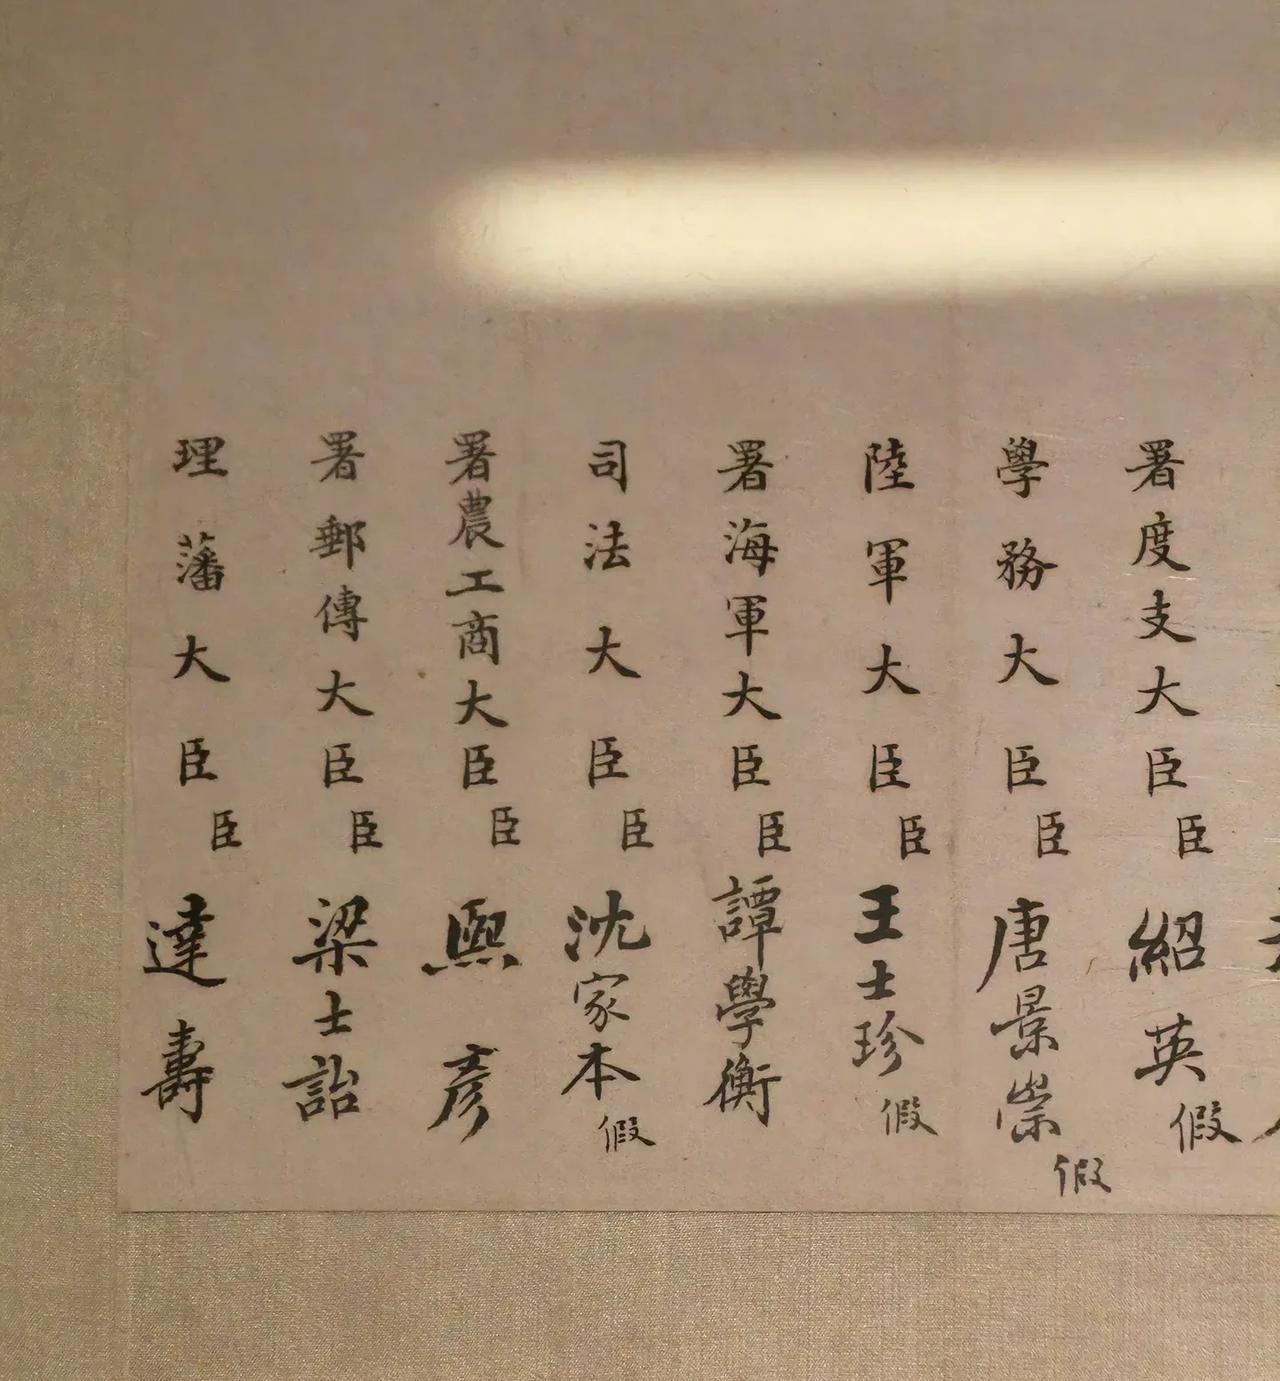 署度支大臣臣紹英假
學務大臣臣唐景崇假
陸軍大臣臣王士珍假
署海軍大臣臣譚學衡
司法大臣臣沈家本假
署農工商大臣臣熙彥
署郵傳大臣臣梁士詒
理藩大臣臣達壽